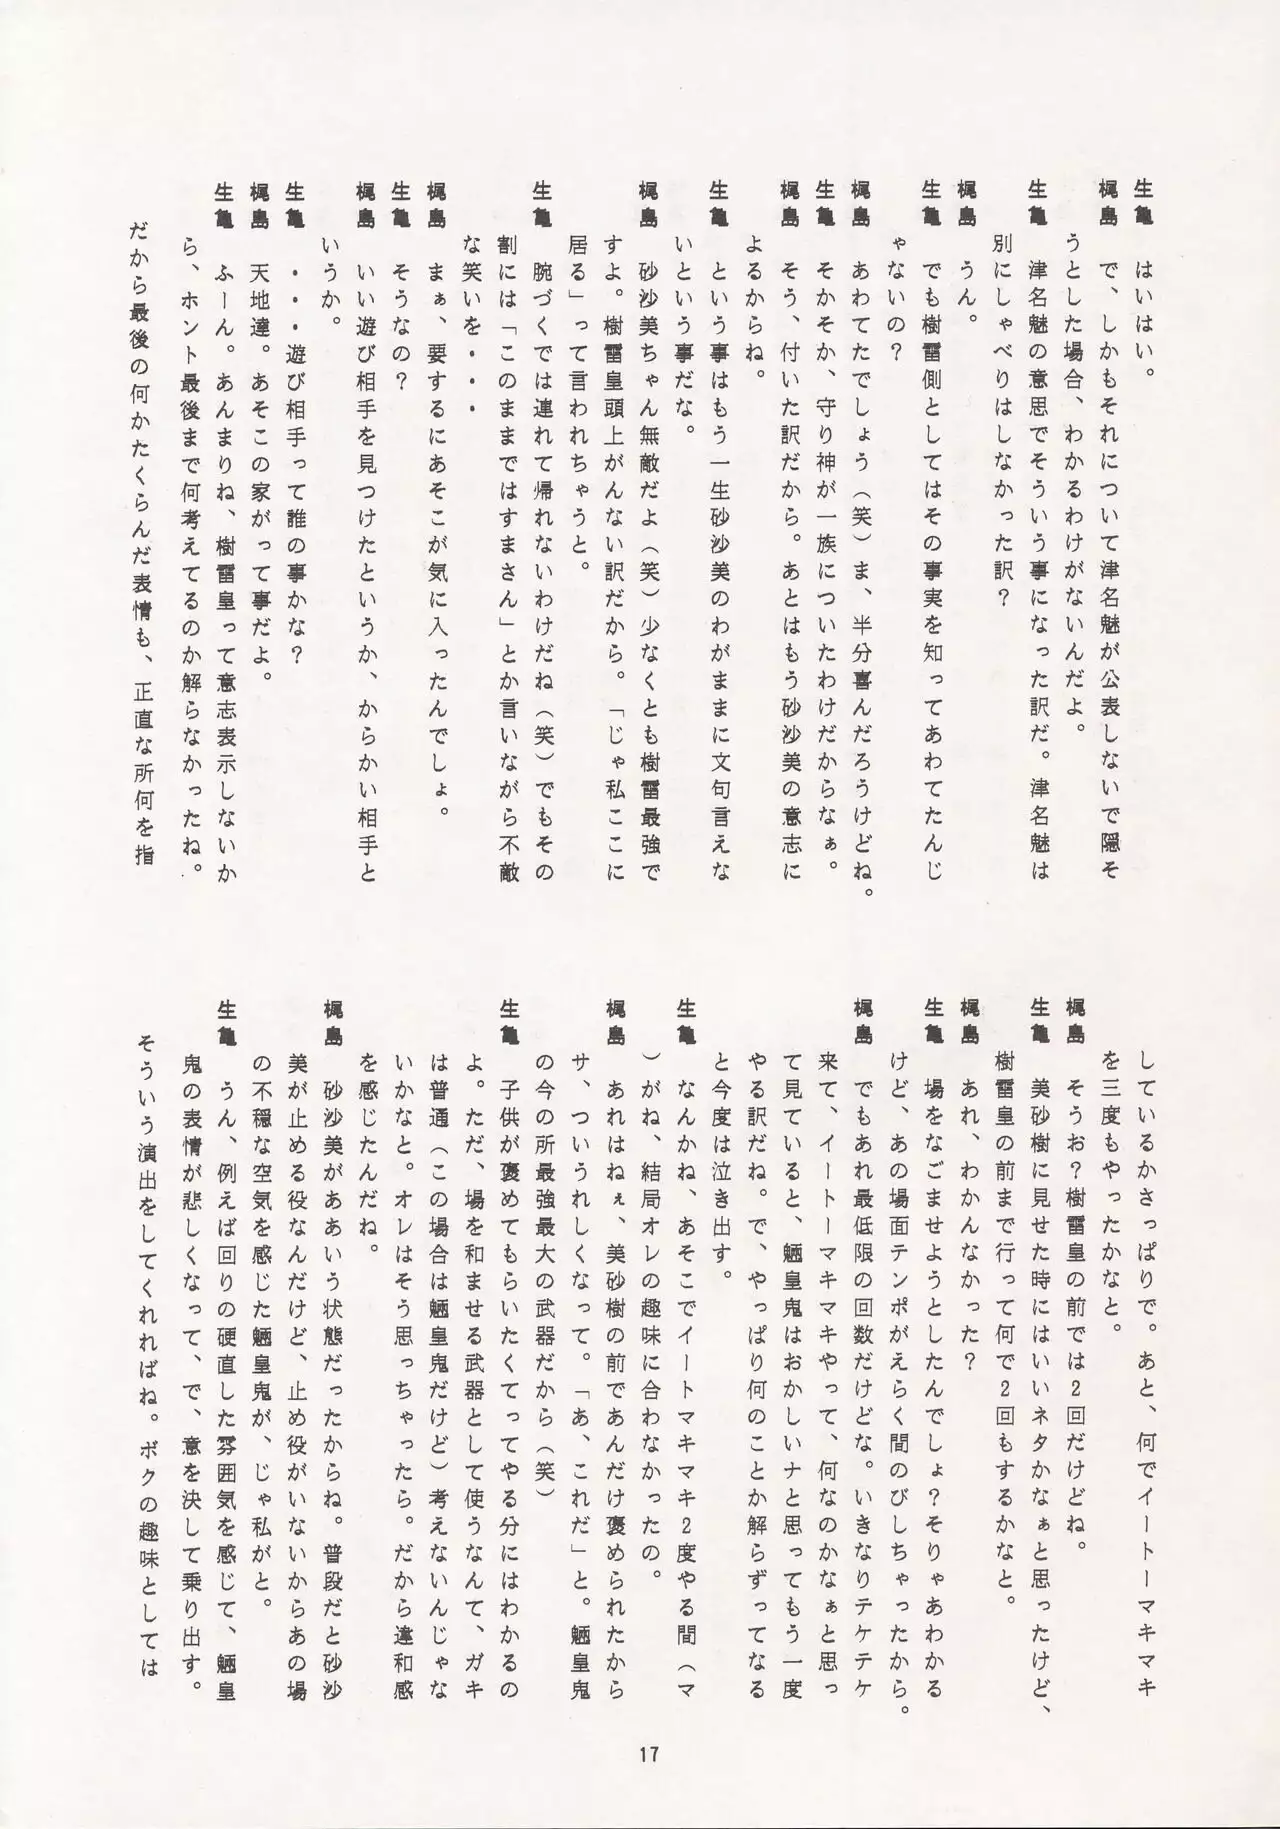 生亀　はいはい。
梶島　で、しかもそれについて津名魅が公表しないで隠そ
うとした場合、わかるわけがないんだよ。
生亀　津名魅の意思でそういう事になった訳だ。津名魅は
別にしゃべりはしなかった訳？
梶島　うん。
生亀　でも樹雷側としてはその事実を知ってあわてたんじ
ゃないの？
梶島　あわてたでしょう（笑）ま、半分喜んだろうけどね。
生亀　そかそか、守り神が一族についたわけだからなぁ。
梶島　そう、付いた訳だから。あとはもう砂沙美の意志に
よるからね。
生亀　という事はもう一生砂沙美のわがままに文句言えな
いという事だな。
梶島　砂沙美ちゃん無敵だよ（笑）少なくとも樹雷最強で
すよ。樹雷皇頭上がんない訳だから。「じゃ私ここに
居る」って言われちゃうと。
生亀　腕づくでは連れて帰れないわけだね（笑）でもその
割には「このままではすまさん」とか言いながら不敵
な笑いを・・・
梶島　まぁ、要するにあそこが気に入ったんでしょ。
生亀　そうなの？
梶島　いい遊び相手を見つけたというか、からかい相手と
いうか。
生亀　・・・遊び相手って誰の事かな？
梶島　天地達。あそこの家がって事だよ。
生亀　ふーん。あんまりね、樹雷皇って意志表示しないか
ら、ホント最後まで何考えてるのか解らなかったね。
だから最後の何かたくらんだ表情も、正直な所何を指
しているかさっぱりで。あと、何でイートーマキマキ
を三度もやったかなと。
梶島　そうお？樹雷皇の前では２回だけどね。
生亀　美砂樹に見せた時にはいいネタかなぁと思ったけど、
樹雷皇の前まで行って何で２回もするかなと。
梶島　あれ、わかんなかった？
生亀　場をなごませようとしたんでしょ？そりゃあわかる
けど、あの場面テンポがえらく間のびしちゃったから。
梶島　でもあれ最低限の回数だけどな。いきなりテケテケ
来て、イートーマキマキやって、何なのかなぁと思っ
て見ていると、魎皇鬼はおかしいナと思ってもう一度
やる訳だね。で、やっぱり何のことか解らずってなる
と今度は泣き出す。
生亀　なんかね、あそこでイートマキマキ２度やる間（マ
）がね、結局オレの趣味に合わなかったの。
梶島　あれはねぇ、美砂樹の前であんだけ褒められたから
サ、ついうれしくなって。「あ、これだ」と。魎皇鬼
の今の所最強最大の武器だから（笑）
生亀　子供が褒めてもらいたくてってやる分にはわかるの
よ。ただ、場を和ませる武器として使うなんて、ガキ
は普通（この場合は魎皇鬼だけど）考えないんじゃな
いかなと。オレはそう思っちゃったら。だから違和感
を感じたんだね。
梶島　砂沙美がああいう状態だったからね。普段だと砂沙
美が止める役なんだけど、止め役がいないからあの場
の不穏な空気を感じた魎皇鬼が、じゃ私がと。
生亀　うん、例えば回りの硬直した雰囲気を感じて、魎皇
鬼の表情が悲しくなって、で、意を決して乗り出す。
そういう演出をしてくれればね。ボクの趣味としては
17